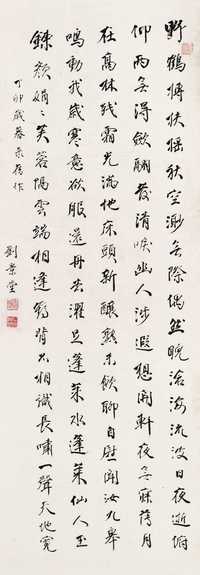 野鶴摶扶搖秋空渺無際偶然睨滄海流波日夜逝俯
仰兩無得斂翮發清唳幽人涉遐想開軒夜無寐薄月
在高林殘霜光滿地床頭新釀熟未飲聊自慰聞汝九皋
鳴動我歲寒意欲服還丹去濯足蓬萊水蓬萊仙人玉
鍊顏娟娟笑容隔雲端相逢鶴背不相識長嘯一聲天地寬
丁卯歲暮舊作
劉景堂